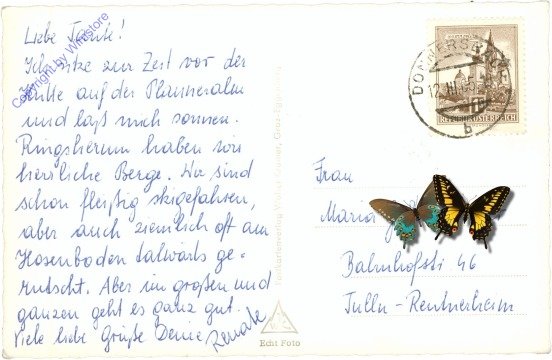 Liebe Tante!
Ich sitze zur Zeit vor der
Hütte auf der Planneralm
und laß mich sonnen.
Ringsherum haben wir
herrliche Berge. Wir sind
schon fleißig skigefahren,
aber auch ziemlich oft am
Hosenboden talwärts ge-
rutscht. Aber im großen und
ganzen geht es ganz gut.
Viele liebe Grüße Deine Renate
Copyright by Wmstore
DONNERSBACH
12.III.65
b
REPUBLIK ÖSTERREICH
Frau
Maria
Bahnhofstr 46
Tulln -
Echt Foto